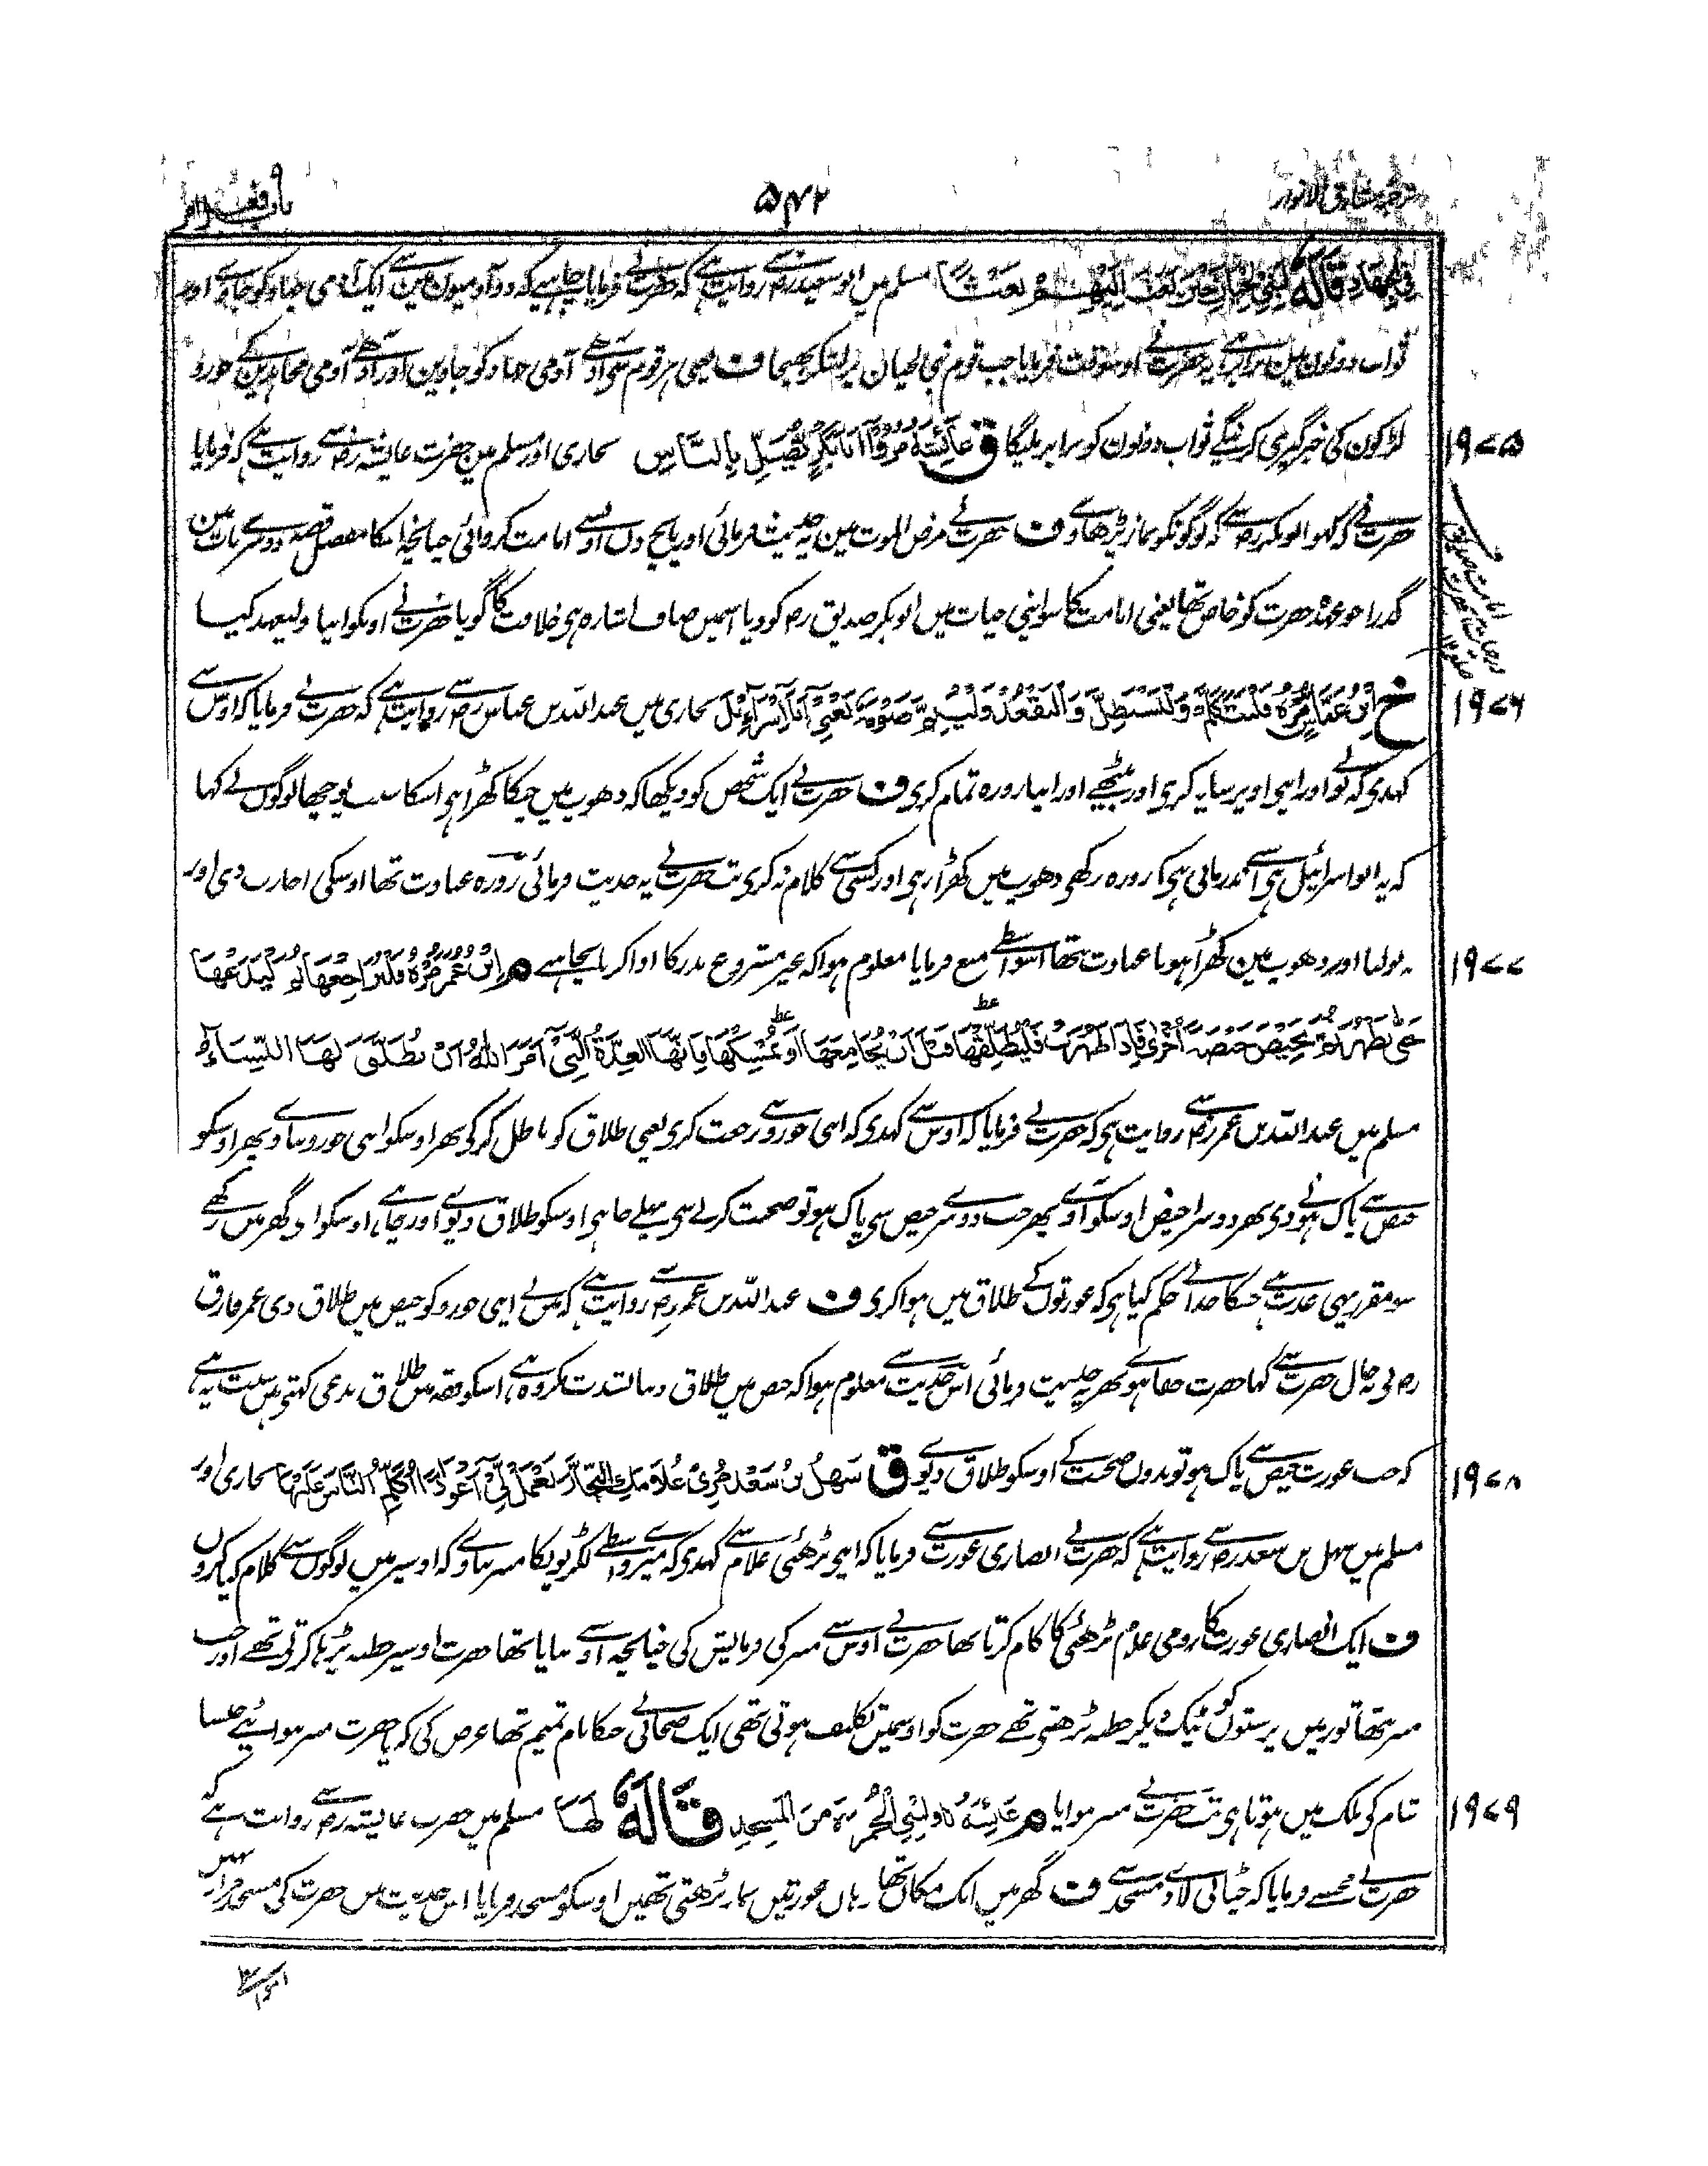 ترجمہ مشارق الانوار
۵۴۲
فِی الجِهَادِ قَالَهُ لِبَنِي لِحْيَانَ حِيْنَ بَعَثَ اِلَيْهِمْ بَعْثًا مسلم میں ابو سعید رضہ سے روایت ہے کہ حضرت نے فرمایا چاہیے کہ دو آدمیوں مین سے ایک آدمی جہاد کو جاوے اور
ثواب دونون مین برابر ہے یہ حضرت نے اوسوقت فرمایا جب قوم بنی لحیان پر لشکر بھیجا ف یعنی ہر قوم سی آدھے آدمی جہاد کو جاوین اور آدھے آدمی مجاہدین کے جورو
لڑکون کی خبرگیری کرینگے ثواب دونون کو برابر ملیگا ق عَائِشَةُ مُرُوْا اَبَابَكْرٍ فَلْيُصَلِّ بِالنَّاسِ بخاری اور مسلم مین حضرت عایشہ رضہ سے روایت ہے کہ فرمایا
۱۹۷۵
حضرت نے کہ کہو ابوبکر رضہ سے کہ لوگونکو نماز پڑھاوے ف حضرت نے مرض الموت مین یہ حدیث فرمائی اور پانچ دن اوسے امامت کروائی چنانچہ اسکا مفصل قصہ دوسرے باب مین
گذرا جو عہدہ حضرت کو خاص تھا یعنی امامت کا سو اپنی حیات میں ابوبکر صدیق رضہ کو دیا اسمیں صاف اشارہ ہی خلافت کا گویا حضرت نے اونکو اپنا ولیعہد کیا
خ اِبْنُ عَبَّاسٍ مُرْهُ فَلْيَتَكَلَّمْ وَلْيَسْتَظِلَّ وَلْيَقْعُدْ وَلْيُتِمَّ صَوْمَهُ يَعْنِيْ اَبَا اِسْرَآئِيْلَ بخاری میں عبد اللہ بن عباس رضہ سے روایت ہے کہ حضرت نے فرمایا کہ اوس سے
۱۹۷۶
کہدی کہ بولے اور اپنی اوپر سایہ کری اور بیٹھے اور اپنا روزہ تمام کری ف حضرت نے ایک شخص کو دیکھا کہ دھوپ میں چپکا کھڑا ہی اسکا سبب پوچھا لوگوں نے کہا
کہ یہ ابو اسرائیل ہی اسنے نذر مانی ہی کہ روزہ رکھی دھوپ میں کھڑا رہی اور کسی سے کلام نہ کری تب حضرت نے یہ حدیث فرمائی روزہ عبادت تھا اوسکی اجازت دی اور
نہ بولنا اور دھوپ مین کھڑا ہونا عبادت نتھا اسواسطے منع فرمایا معلوم ہوا کہ غیر مشروع نذر کا ادا کرنا بیجا ہے م اِبْنُ عُمَرَ مُرْهُ فَلْيُرَاجِعْهَا ثُمَّ لْيَدَعْهَا
۱۹۷۷
حَتّٰى تَطْهُرَ ثُمَّ تَحِيْضَ حَيْضَةً اُخْرٰى فَاِذَا طَهُرَتْ فَلْيُطَلِّقْهَا قَبْلَ اَنْ يُجَامِعَهَا اَوْ يُمْسِكْهَا فَاِنَّهَا الْعِدَّةُ الَّتِيْ اَمَرَ اللهُ اَنْ يُطَلَّقَ لَهَا النِّسَآءُ
مسلم میں عبد اللہ بن عمر رضہ سے روایت ہی کہ حضرت نے فرمایا کہ اوس سے کہدی کہ اپنی جورو سے رجعت کری یعنی طلاق کو باطل کرکی پھر اوسکو اپنی جورو بناوے پھر اوسکو
حیض سے پاک ہونے دی پھر دوسرا حیض اوسکو آوے پھر جب دوسرے حیض سی پاک ہو تو صحبت کرنے سی پہلے چاہی اوسکو طلاق دیوے اور چاہے اوسکو گھر میں رکھے
سو مقرر یہی عدت ہے جسکا خدا نے حکم کیا ہی کہ عورتوں کے طلاق میں ہوا کری ف عبد اللہ بن عمر رضہ سے روایت ہے کہ میں نے اپنی جورو کو حیض میں طلاق دی عمر فارق
رضہ نی یہ حال حضرت سے کہا حضرت خفا ہوئے پھر یہ حدیث فرمائی اس حدیث سے معلوم ہوا کہ حیض میں طلاق دینا بشدت مکروہ ہے اسکو فقہ میں طلاق بدعی کہتی ہیں سنت یہ ہے
کہ جب عورت حیض سے پاک ہو تو بدون صحبت کے اوسکو طلاق دیوے ق سَهْلُ بْنُ سَعْدٍ مُرِيْ غُلَامَكِ النَّجَّارَ يَعْمَلْ لِيْ اَعْوَادًا اُكَلِّمُ النَّاسَ عَلَيْهَا بخاری اور
۱۹۷۸
مسلم میں سہل بن سعد رضہ سے روایت ہے کہ حضرت نے انصاری عورت سے فرمایا کہ اپنی بڑھئی غلام سے کہدی کہ میرے واسطے لکڑیونکا ممبر بناوے کہ اوسپر میں لوگوں سے کلام کیا کروں
ف ایک انصاری عورت کا رومی غلام بڑھئی کا کام کرتا تھا حضرت نے اوس سے ممبر کی فرمایش کی چنانچہ اوسنے بنایا تھا حضرت اوسپر خطبہ پڑہا کرتی تھے اور جب
ممبر نتھا تو زمیں پر ستوں کو ٹیک دیکر خطبہ پڑھتی تھے حضرت کو اوسمین تکلیف ہوتی تھی ایک صحابی جنکا نام تمیم تھا عرض کی کہ یا حضرت ممبر بنوائیے جیسا
شام کی ملک میں ہوتا ہی تب حضرت نے ممبر بنوایا م عَائِشَةُ نَاوِلِيْنِيْ الْخُمْرَةَ مِنَ الْمَسْجِدِ قَالَهُ لَهَا مسلم میں حضرت عایشہ رضہ سے روایت ہے کہ
۱۹۷۹
حضرت نے مجھسے فرمایا کہ چٹائی لادے مسجد سے ف گھر میں ایک مکان تھا وہاں عورتیں نماز پڑھتی تھیں اوسکو مسجد فرمایا اس حدیث میں حضرت کی مسجد مراد نہیں